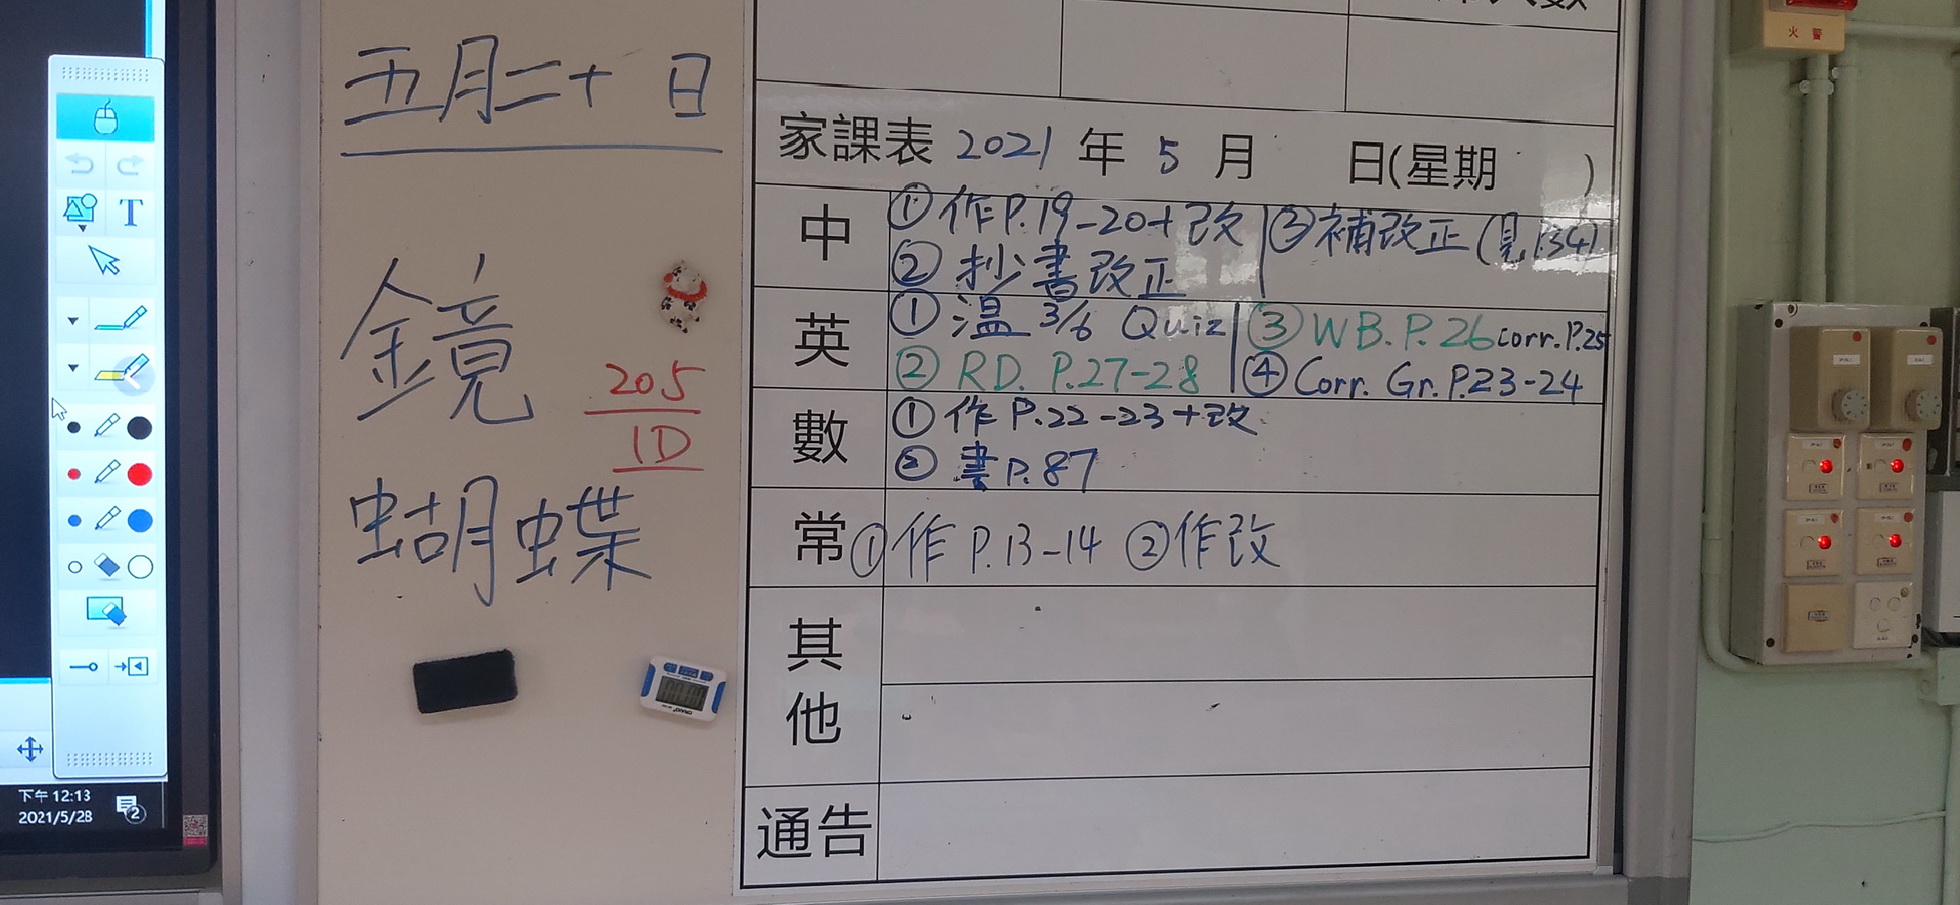 五月二十 日
鏡
205
1D
蝴蝶
家課表 2021 年 5 月 日(星期 )
中
① 作P.19-20+改
② 抄書改正
③ 補改正
英
① 温 3/6 Quiz
② RD. P.27-28
③ WB. P.26 corr. P.25
④ Corr. Gr. P.23-24
數
① 作 P.22-23+改
② 書P.87
常
① 作 P.13-14 ② 作改
其他
通告
T
下午 12:13
2021/5/28
2
火 警